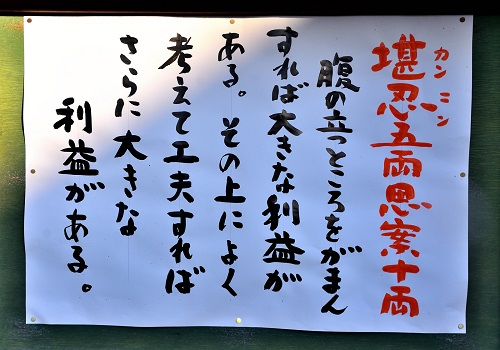 カンニン
堪忍五両思案十両
腹の立つところをがまん
すれば大きな利益が
ある。その上によく
考えて工夫すれば
さらに大きな
利益がある。